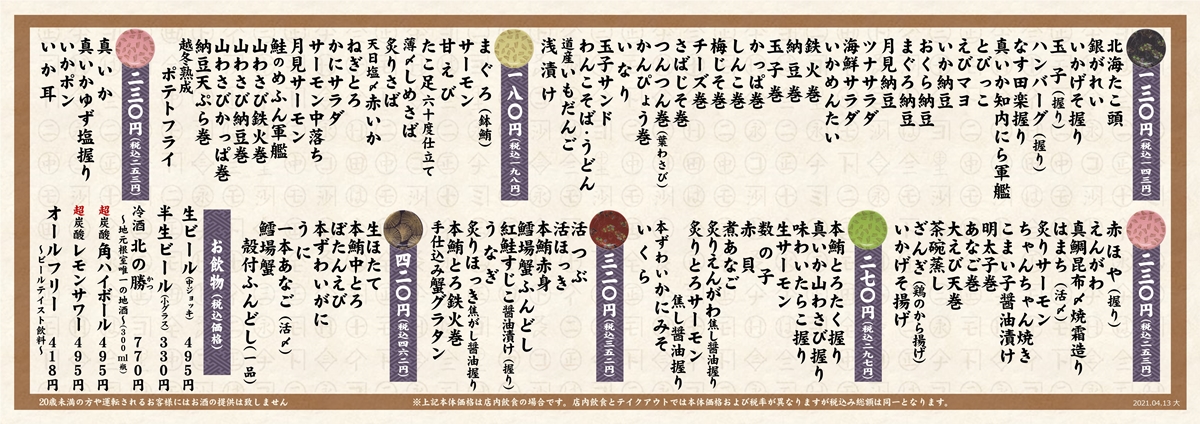 一三〇円（税込一四三円）
北海たこ頭
銀がれい
いかげそ握り
玉子（握り）
ハンバーグ（握り）
なす田楽握り
真いか知内にら軍艦
とびっこ
えびマヨ
いか納豆
おくら納豆
まぐろ納豆
月見納豆
ツナサラダ
海鮮サラダ
いかめんたい
鉄火巻
納豆巻
玉子巻
かっぱ巻
しんこ巻
梅じそ巻
チーズ巻
さばじそ巻
つんつん巻（葉わさび）
かんぴょう巻
いなり
玉子サンド
わんこそば・うどん
道産いもだんご
浅漬け
一八〇円（税込一九八円）
まぐろ（鉢鮪）
サーモン
甘えび
たこ足 六十度仕立て
薄〆しめさば
炙りさば
天日塩〆赤いか
ねぎとろ
かにサラダ
サーモン中落ち
月見サーモン
鮭のめふん軍艦
山わさび鉄火巻
山わさび納豆巻
山わさびかっぱ巻
納豆天ぷら巻
越冬熟成
ポテトフライ
二三〇円（税込二五三円）
真いか
真いかゆず塩握り
いかポン
いか耳
二三〇円（税込二五三円）
赤ほや（握り）
えんがわ
真鯛昆布〆焼霜造り
はまち（活〆）
炙りサーモン
ちゃんちゃん焼き
こまい子醤油漬け
明太子巻
あなご巻
大えび天巻
茶碗蒸し
ざんぎ（鶏のから揚げ）
いかげそ揚げ
二七〇円（税込二九七円）
本鮪とろたく握り
真いか山わさび握り
味わいたらこ握り
生サーモン
数の子
赤貝
煮あなご
炙りえんがわ焦し醤油握り
炙りとろサーモン
焦し醤油握り
本ずわいかにみそ
いくら
三二〇円（税込三五二円）
活つぶ
活ほっき
本鮪赤身
鱈場蟹ふんどし
紅鮭すじこ醤油漬け（握り）
うなぎ
炙りほっき焦がし醤油握り
本鮪とろ鉄火巻
手仕込み蟹グラタン
四二〇円（税込四六二円）
生ほたて
本鮪中とろ
ぼたんえび
本ずわいがに
うに
一本あなご（活〆）
鱈場蟹
殻付ふんどし（一品）
お飲物（税込価格）
生ビール（中ジョッキ） 495円
半生ビール（小グラス） 330円
冷酒 北の勝 かつ 770円
～地元根室唯一の地酒～（300ml瓶）
超炭酸 角ハイボール 495円
超炭酸 レモンサワー 495円
オールフリー 418円
～ビールテイスト飲料～
20歳未満の方や運転されるお客様にはお酒の提供は致しません
※上記本体価格は店内飲食の場合です。店内飲食とテイクアウトでは本体価格および税率が異なりますが税込み総額は同一となります。
2021.04.13 大